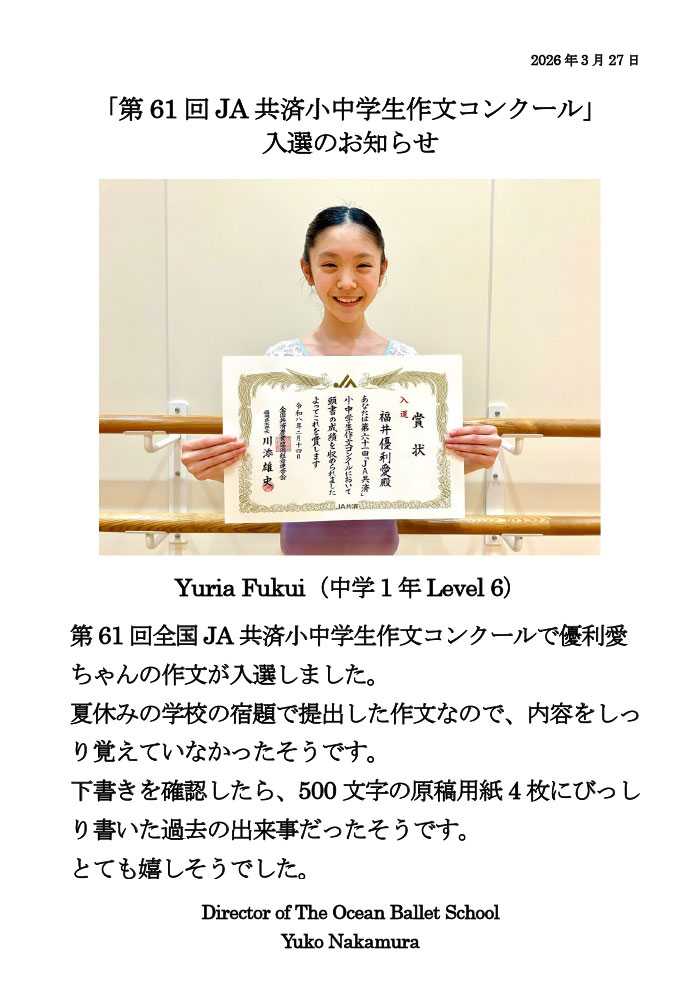 2026年3月27日
「第61回JA共済小中学生作文コンクール」
入選のお知らせ
JA
入選
賞状
福井優利愛殿
あなたは第六十一回「JA共済」
小中学生作文コンクールにおいて
頭書の成績を収められました
よってこれを賞します
令和八年二月十四日
川添雄史
JA共済
Yuria Fukui（中学1年 Level 6）
第61回全国JA共済小中学生作文コンクールで優利愛
ちゃんの作文が入選しました。
夏休みの学校の宿題で提出した作文なので、内容をしっ
り覚えていなかったそうです。
下書きを確認したら、500文字の原稿用紙4枚にびっし
り書いた過去の出来事だったそうです。
とても嬉しそうでした。
Director of The Ocean Ballet School
Yuko Nakamura